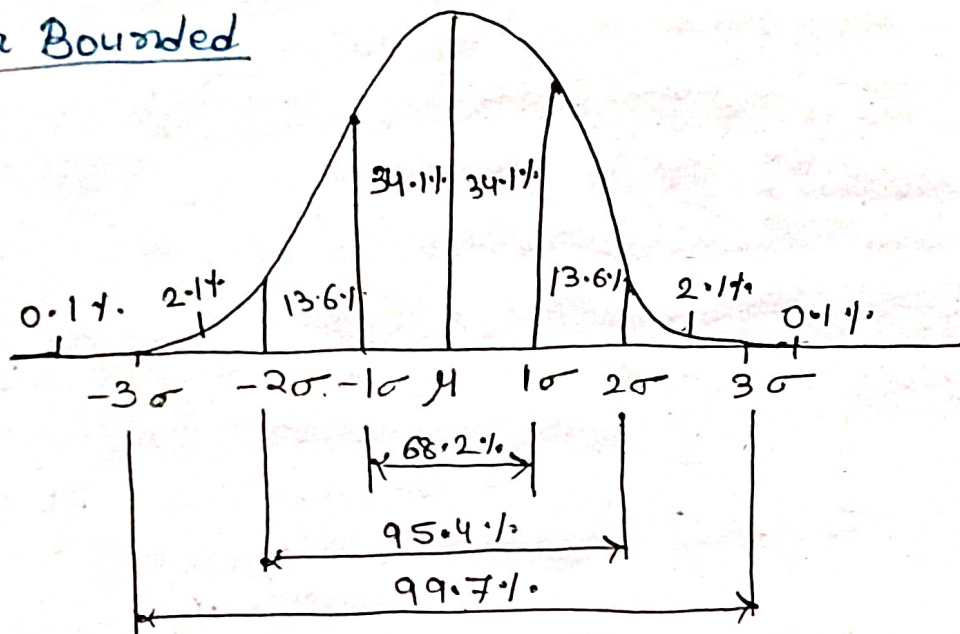 Bounded
34.1% 34.1%
0.1% 2.1% 13.6% 13.6% 2.1% 0.1%
-3σ -2σ -1σ μ 1σ 2σ 3σ
68.2%
95.4%
99.7%